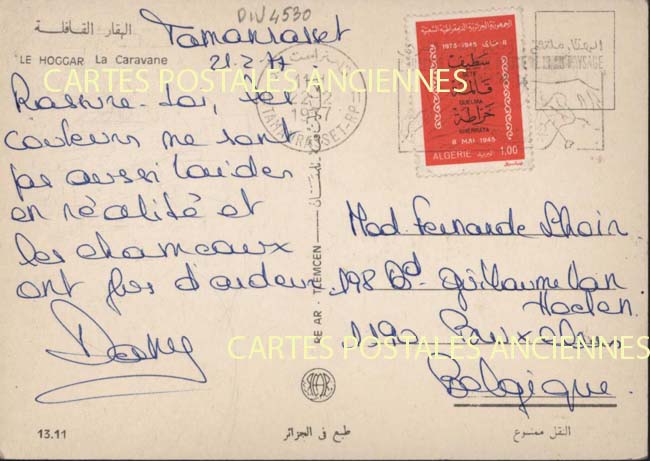 DIV4530
البقار القافلة
LE HOGGAR La Caravane
Tamanrasset
21.2.77
Rassure-toi, les
couleurs ne sont
pas aussi laides
en réalité et
les chameaux
ont plus d'ardeur.
Dany
CARTES POSTALES ANCIENNES
الجمهورية الجزائرية الديمقراطية الشعبية
1975-1945 ماي 8
سطيف
SETIF
قالمة
GUELMA
خراطة
KHERRATA
8 MAI 1945
ALGERIE 1,00
TAMANRASSET-RP
PAYSAGE
RE AR - TLEMCEN
Mad. Fernande Dhain
198 Bd. Guillaume Van
Haelen
1190 Bruxelles
CARTES POSTALES ANCIENNES
Belgique.
13.11
طبع في الجزائر
النقل ممنوع